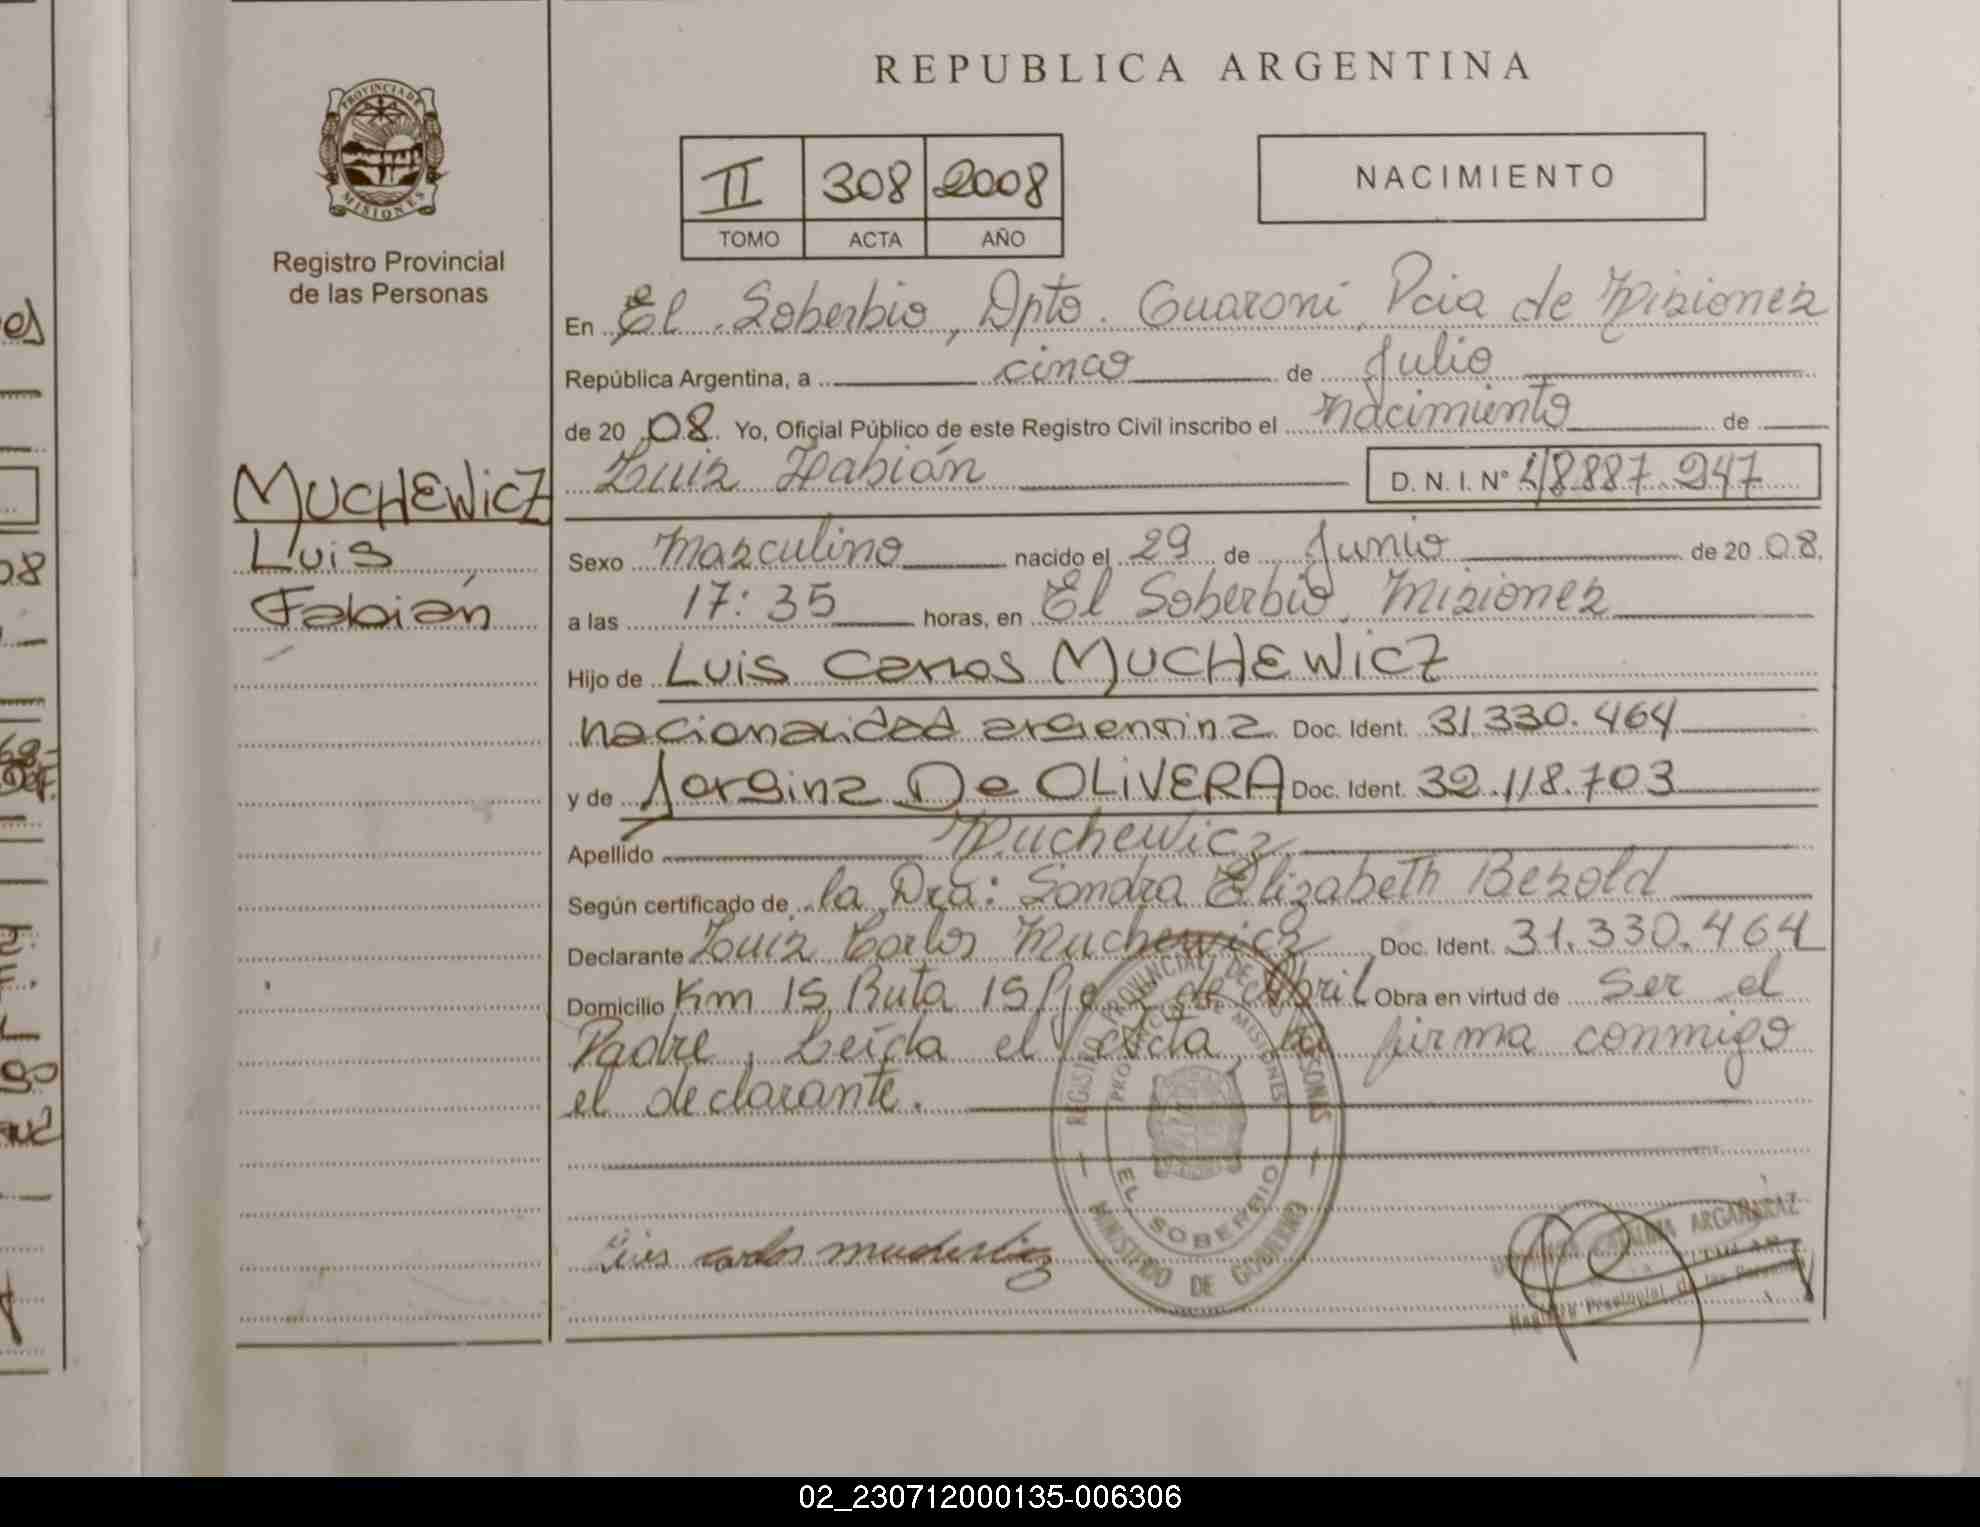 REPUBLICA ARGENTINA
PROVINCIA DE
MISIONES
Registro Provincial
de las Personas
II 308 2008
TOMO ACTA AÑO
NACIMIENTO
En El Soberbio, Dpto. Guaraní, Pcia de Misiones
República Argentina, a cinco de Julio
de 2008. Yo, Oficial Público de este Registro Civil inscribo el nacimiento de
Luis Fabián D.N.I. N° 48887.247
MUCHEWICZ
Luis
Fabián
Sexo Masculino nacido el 29 de Junio de 2008.
a las 17:35 horas, en El Soberbio, Misiones
Hijo de Luis Carlos MUCHEWICZ
nacionalidad argentina Doc. Ident. 31.330.464
y de Jorgina De OLIVERA Doc. Ident. 32.118.703
Apellido Muchewicz
Según certificado de la Dra: Sandra Elizabeth Bezold
Declarante Luis Carlos Muchewicz Doc. Ident. 31.330.464
Domicilio Km 15 Ruta 15 Pje 2 de Abril Obra en virtud de ser el
Padre, Leída el Acta, la firma conmigo
el declarante.
REGISTRO PROVINCIAL DE LAS PERSONAS
PROVINCIA DE MISIONES
EL SOBERBIO
MINISTERIO DE GOBIERNO
luis carlos muchewicz
ARGAÑARAZ
Registro Provincial de las Personas
02_230712000135-006306